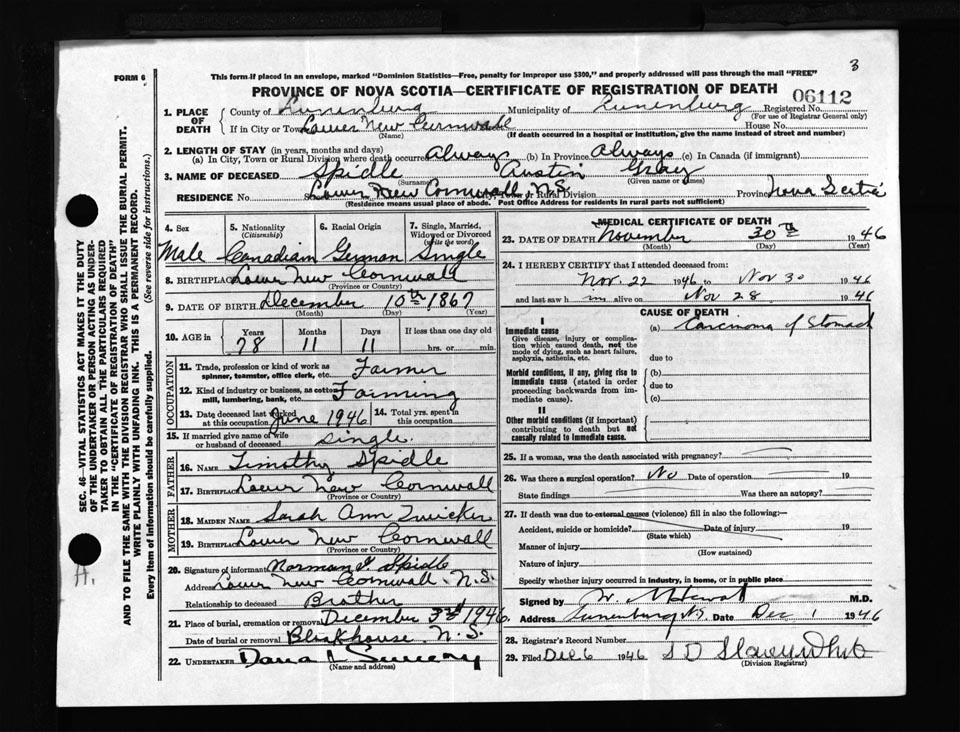 3
FORM 6
This form if placed in an envelope, marked "Dominion Statistics—Free, penalty for improper use $300," and properly addressed will pass through the mail "FREE"
PROVINCE OF NOVA SCOTIA—CERTIFICATE OF REGISTRATION OF DEATH
06112
1. PLACE OF DEATH
County of Lunenburg Municipality of Lunenburg Registered No.
(For use of Registrar General only)
If in City or Town Lower New Cornwall House No.
(Name) (If death occurred in a hospital or institution, give the name instead of street and number)
2. LENGTH OF STAY (in years, months and days)
(a) In City, Town or Rural Division where death occurred Always (b) In Province Always (c) In Canada (if immigrant)
3. NAME OF DECEASED Spidle Austin Gray
(Surname) (Given name or names)
RESIDENCE No. Lower New Cornwall, N.S. or Rural Division Province Nova Scotia
(Residence means usual place of abode. Post Office Address for residents in rural parts not sufficient)
4. Sex
Male
5. Nationality
(Citizenship)
Canadian
6. Racial Origin
German
7. Single, Married, Widowed or Divorced
(write the word)
Single
8. BIRTHPLACE Lower New Cornwall
(Province or Country)
9. DATE OF BIRTH December 10th 1867
(Month) (Day) (Year)
10. AGE in
Years Months Days If less than one day old
78 11 11 hrs. or min.
OCCUPATION
11. Trade, profession or kind of work as spinner, teamster, office clerk, etc. Farmer
12. Kind of industry or business, as cotton mill, lumbering, bank, etc. Farming
13. Date deceased last worked at this occupation June 1946
14. Total yrs. spent in this occupation
15. If married give name of wife or husband of deceased single.
FATHER
16. NAME Timothy Spidle
17. BIRTHPLACE Lower New Cornwall
(Province or Country)
MOTHER
18. MAIDEN NAME Sarah Ann Zwicker
19. BIRTHPLACE Lower New Cornwall
(Province or Country)
20. Signature of informant Norman T. Spidle
Address Lower New Cornwall. N.S.
Relationship to deceased Brother
21. Place of burial, cremation or removal December 3rd 1946.
Date of burial or removal Blockhouse. N.S.
22. UNDERTAKER Dana L Sweeny
(Name and address)
MEDICAL CERTIFICATE OF DEATH
23. DATE OF DEATH November 30th 1946
(Month) (Day) (Year)
24. I HEREBY CERTIFY that I attended deceased from:
Nov. 22 1946 to Nov 30 1946
and last saw h im alive on Nov 28 1946
CAUSE OF DEATH
I
Immediate cause
Give disease, injury or complication which caused death, not the mode of dying, such as heart failure, asphyxia, asthenia, etc.
(a) Carcinoma of Stomach
due to
Morbid conditions, if any, giving rise to immediate cause (stated in order proceeding backwards from immediate cause).
(b)
due to
(c)
II
Other morbid conditions (if important) contributing to death but not causally related to immediate cause.
25. If a woman, was the death associated with pregnancy?
26. Was there a surgical operation? No Date of operation 19
State findings Was there an autopsy?
27. If death was due to external causes (violence) fill in also the following:—
Accident, suicide or homicide? Date of injury 19
(State which)
Manner of injury
(How sustained)
Nature of injury
Specify whether injury occurred in industry, in home, or in public place
Signed by W. M. M.D.
Address Lunenburg N.S. Date Dec 1 1946
28. Registrar's Record Number
29. Filed Dec 6 1946 S D Slauenwhite
(Division Registrar)
SEC. 46—VITAL STATISTICS ACT MAKES IT THE DUTY
OF THE UNDERTAKER OR PERSON ACTING AS UNDER-
TAKER TO OBTAIN ALL THE PARTICULARS REQUIRED
IN THE "CERTIFICATE OF REGISTRATION OF DEATH"
AND TO FILE THE SAME WITH THE DIVISION REGISTRAR WHO SHALL ISSUE THE BURIAL PERMIT.
WRITE PLAINLY WITH UNFADING INK. THIS IS A PERMANENT RECORD.
Every item of information should be carefully supplied. (See reverse side for instructions.)
H.